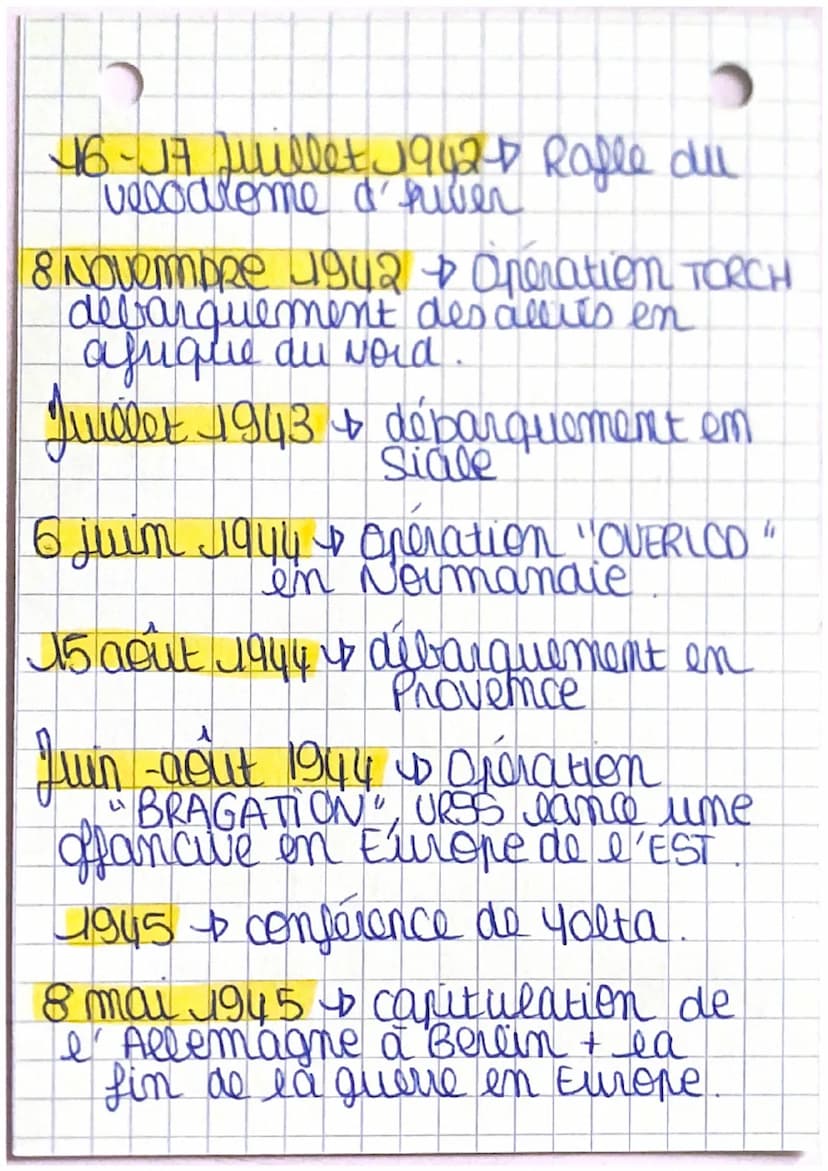 16-17 Juillet 1942 → Rafle du
velodrome d'hiver
8 Novembre 1942 → Opération TORCH
debarquement des alliés en
afrique du Nord.
Juillet 1943 → débarquement en
Sicile
6 juin 1944 → Opération "OVERLOD"
en Normandie.
15 août 1944 → débarquement en
Provence
Juin -août 1944 → Opération
"BRAGATION", URSS lance une
offancive en Europe de l'EST.
1945 → conférence de Yalta.
8 mai 1945 → capitulation de
l'Allemagne à Berlin + la
fin de la guerre en Europe.